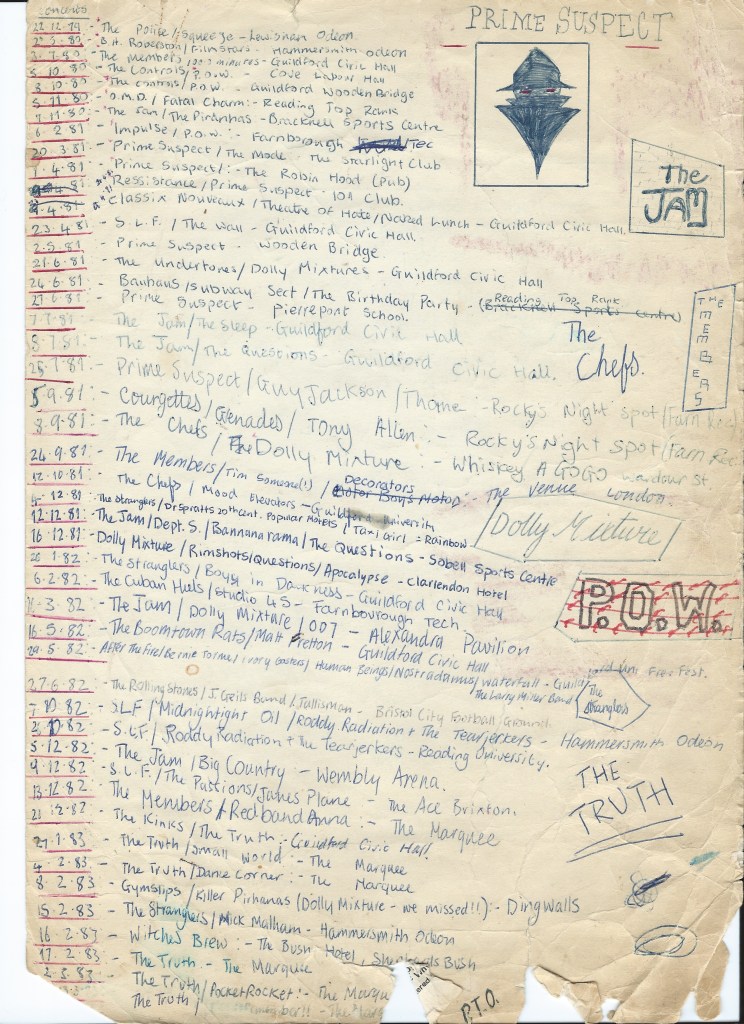 Concerts
PRIME SUSPECT
22.12.79 - The Police/Squeeze - Lewisham Odeon.
B.A. Robertson/Filmstars - Hammersmith Odeon
3.7.80 - The Members - Guildford Civic Hall
3.10.80 - The Controls/P.O.W. - Cove Labour Hall
8.10.80 - The Controls/P.O.W. - Guildford Wooden Bridge
5.11.80 - O.M.D./Fatal Charm:- Reading Top Rank
7.11.80 - The Jam/The Piranhas - Bracknell Sports Centre
6.2.81 - Impulse/P.O.W.:- Farnborough Tec
20.3.81 - Prime Suspect/The Mode - The Starlight Club
1.4.81 - Prime Suspect/:- The Robin Hood (Pub)
Ressistance/Prime Suspect - 101 Club.
9.4.81 Classix Nouveaux/Theatre of Hate/Naked Lunch - Guildford Civic Hall.
23.4.81 - S L F./The Wall - Guildford Civic Hall.
2.5.81 - Prime Suspect - Wooden Bridge.
21.6.81 - The Undertones/Dolly Mixtures - Guildford Civic Hall
24.6.81 - Bauhaus/Subway Sect/The Birthday Party - Reading Top Rank (Bracknell Sports Centre)
27.6.81 - Prime Suspect - Pierrepont School.
7.7.81 - The Jam/The Sleep - Guildford Civic Hall
8.7.81 - The Jam/The Questions - Guildford Civic Hall.
25.7.81 - Prime Suspect/Guy Jackson/Thorne - Rocky's Night spot/Farn
5.9.81 - Courgettes/Grenades/Tony Allen:- Rocky's Night Spot/Farn Rec
8.9.81 - The Chefs/The Dolly Mixture:- Whiskey A GoGo Wardour St
24.9.81 - The Members/Tim Somered(!)/Decorators :- The Venue London.
12.10.81 - The Chefs/Mood Elevators - Guildford University
12.81 - The Stranglers/Dr Spratts 20th Cent. Popular Motets/Taxi Girl = Rainbow
12.12.81 - The Jam/Dept. S./Bannanarama/The Questions - Sobell Sports Centre
16.12.81 - Dolly Mixture/Rimshots/Questions/Apocalypse - Clarendon Hotel
1.82 - The Stranglers/Boys in Darkness - Guildford Civic Hall
6.2.82 - The Cuban Heels/Studio 45 - Farnbourough Tech
3.82 - The Jam/Dolly Mixture/007 - Alexandra Pavilion
16.5.82 - The Boomtown Rats/Matt Fretton - Guildford Civic Hall
29.5.82 - After the Fire/Bernie Torme/Ivory Coasters/Human Beings/Nostradamus/Waterfall - Guildford Uni Free Fest.
The Larry Miller Band
27.6.82 - The Rolling Stones/J. Geils Band/Tallisman - Bristol City Football Ground
10.82 - SLF/Midnightight Oil/Roddy Radiation + The Tearjerkers - Hammersmith Odeon
10.82 - S.L.F/Roddy Radiation + The Tearjerkers - Reading University.
5.12.82 - The Jam/Big Country - Wembly Arena.
9.12.82 - S.L.F./The Pastions/Janes Plane - The Ace Brixton.
13.12.82 - The Members + Redband Anna:- The Marquee
21.12.82 - The Kinks/The Truth - Guildford Civic Hall
27.1.83 - The Truth/Small World - The Marquee
4.2.83 - The Truth/Dance Corner:- The Marquee
8.2.83 - Gymslips/Killer Pirhanas (Dolly Mixture - we missed!!):- Dingwalls
15.2.83 - The Stranglers/Mick Malham - Hammersmith Odeon
16.2.83 - Witches Brew:- The Bush Hotel, Shepherds Bush
17.2.83 - The Truth - The Marquee
2.3.83 - The Truth/PocketRocket:- The Marque
The Truth/ - The Marq
The JAM
THE MEMBERS
The Chefs.
Dolly Mixture
P.O.W.
The Stranglers
THE TRUTH
P.T.O.